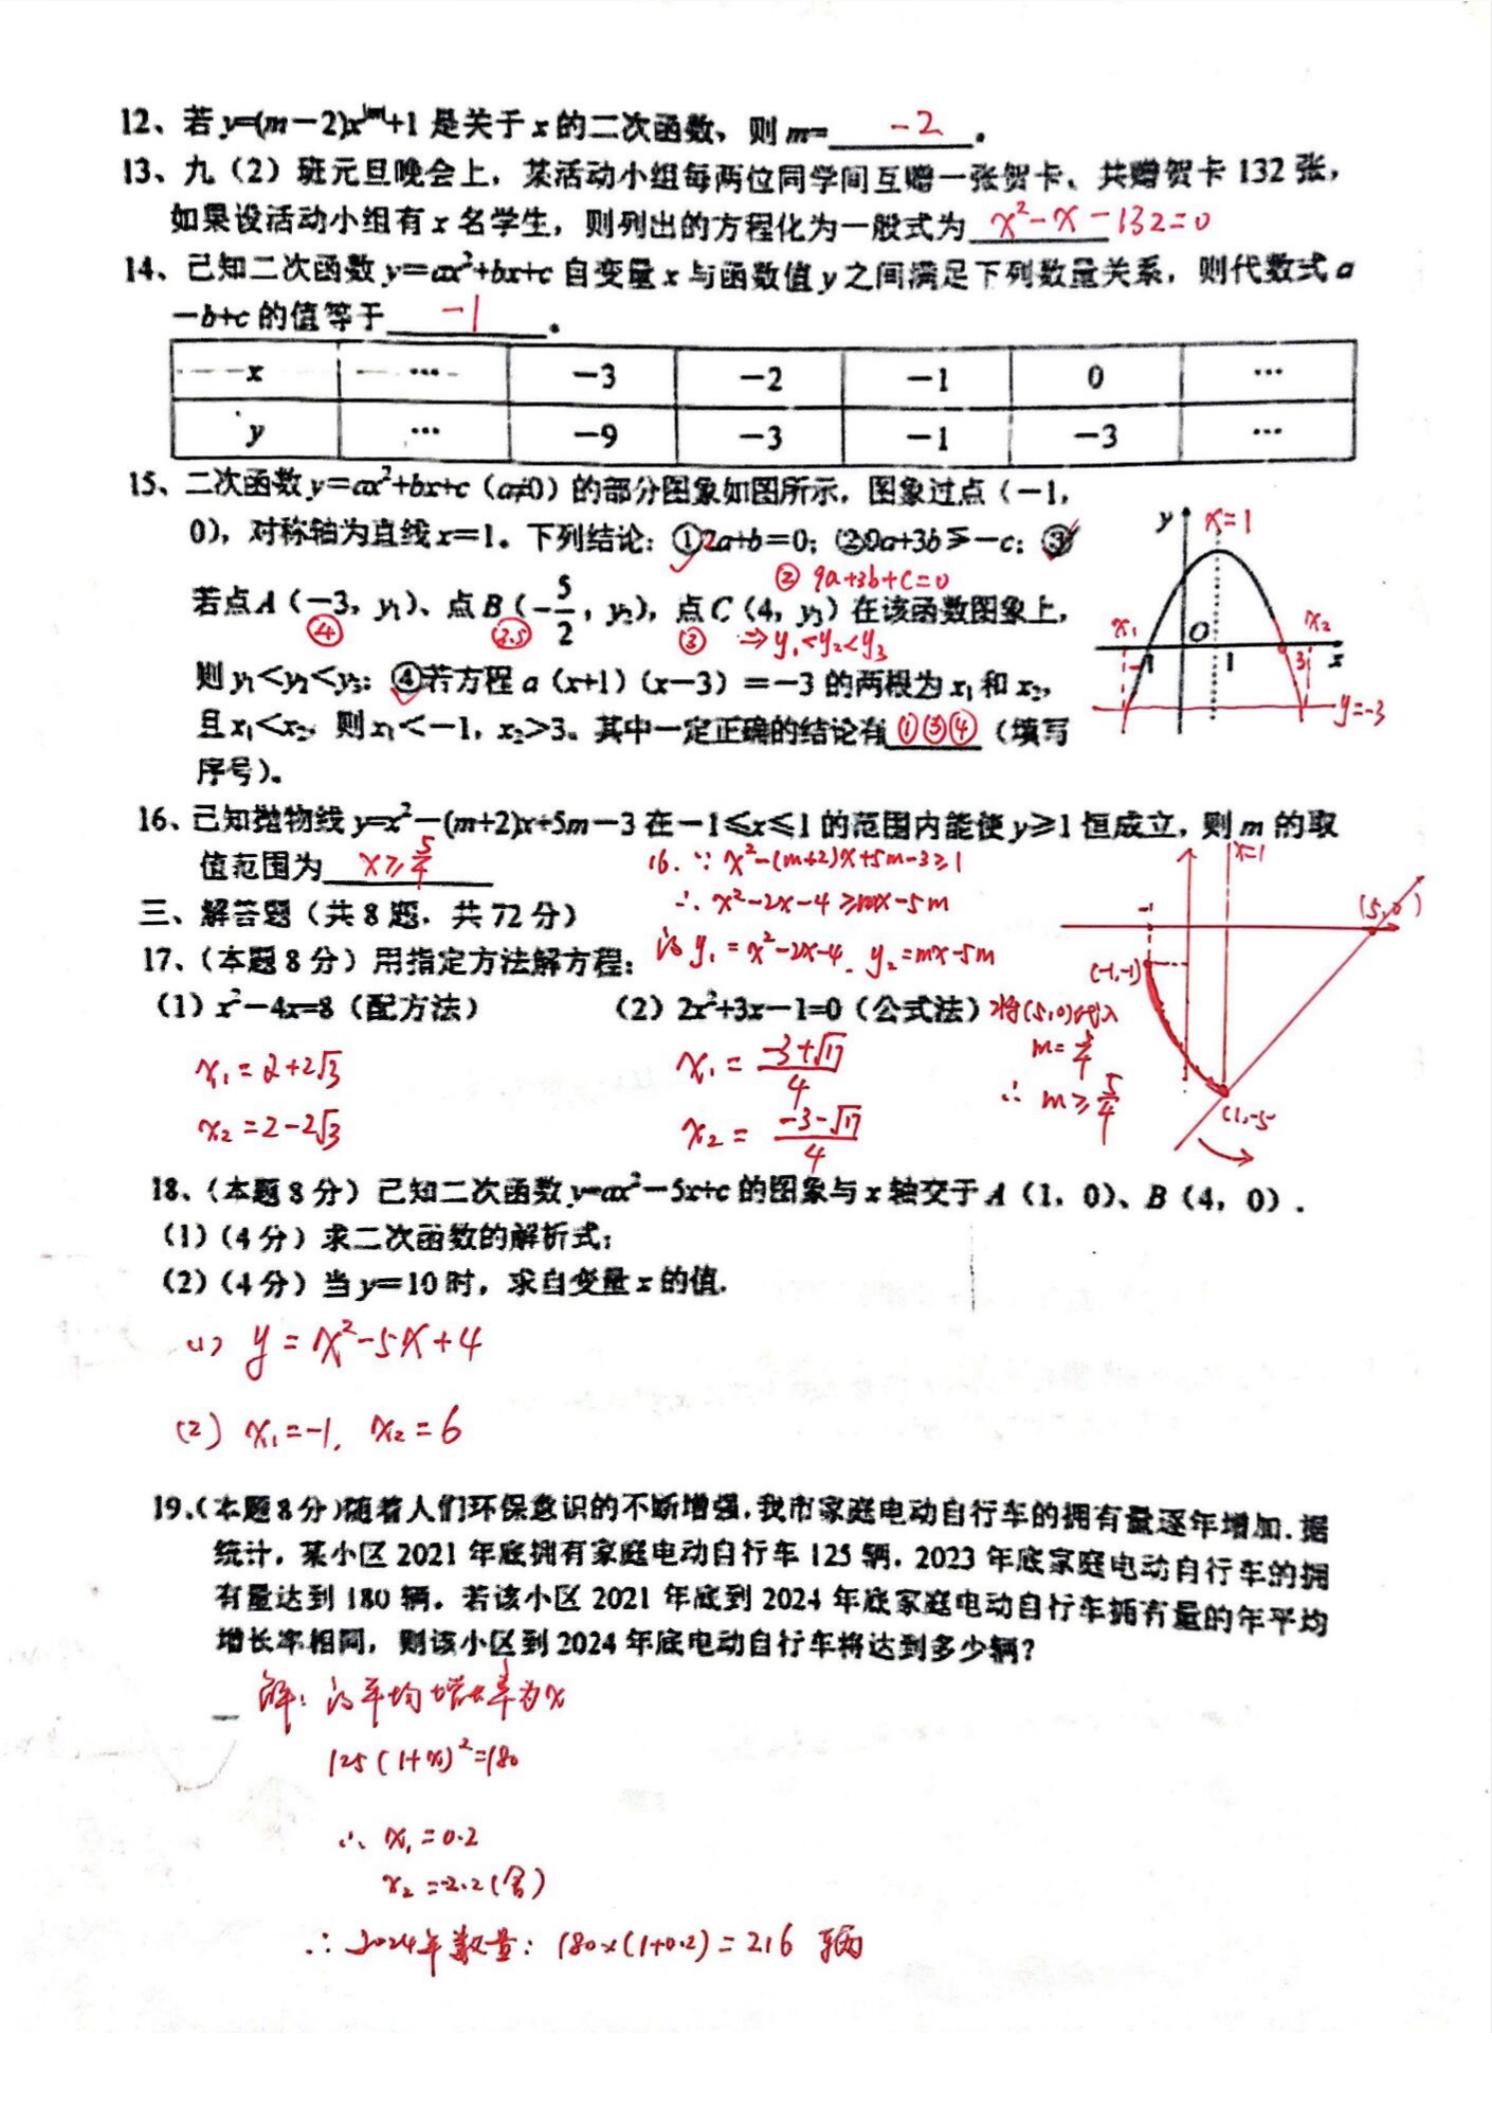 12、若 y=(m－2)x^|m|+1 是关于 x 的二次函数，则 m= -2 。
13、九（2）班元旦晚会上，某活动小组每两位同学间互赠一张贺卡、共赠贺卡 132 张，
如果设活动小组有 x 名学生，则列出的方程化为一般式为 x²-x-132=0
14、已知二次函数 y＝ax²+bx+c 自变量 x 与函数值 y 之间满足下列数量关系，则代数式 a
－b+c 的值等于 -1 。
x … －3 －2 －1 0 …
y … －9 －3 －1 －3 …
15、二次函数 y＝ax²+bx+c（a≠0）的部分图象如图所示，图象过点（－1，
0），对称轴为直线 x＝1。下列结论：①2a+b＝0；②9a+3b＞－c；③
② 9a+3b+c=0
若点 A（－3，y₁）、点 B（－5/2，y₂），点 C（4，y₃）在该函数图象上，
④ 2.5 ③ ⇒y₁<y₂<y₃
则 y₁＜y₂＜y₃；④若方程 a（x+1）（x－3）＝－3 的两根为 x₁ 和 x₂，
且 x₁＜x₂，则 x₁＜－1，x₂＞3。其中一定正确的结论有 ①③④ （填写
序号）。
y x=1
x₁ O x₂
-1 1 3 x
y=-3
16、已知抛物线 y=x²－(m+2)x+5m－3 在－1≤x≤1 的范围内能使 y≥1 恒成立，则 m 的取
值范围为 x≥5/4
16. ∵ x²-(m+2)x+5m-3≥1
∴ x²-2x-4≥mx-5m
三、解答题（共 8 题，共 72 分）
设 y₁=x²-2x-4. y₂=mx-5m
17、（本题 8 分）用指定方法解方程：
（1）x²－4x=8（配方法） （2）2x²+3x－1=0（公式法）
将(5,0)代入
∴ m≥5/4
x=1
-1 (5,0)
(-1,-1)
(1,-5
x₁=2+2√3 x₁=(-3+√17)/4
x₂=2-2√3 x₂=(-3-√17)/4
18、（本题 8 分）已知二次函数 y=ax²－5x+c 的图象与 x 轴交于 A（1，0）、B（4，0）.
（1）（4 分）求二次函数的解析式；
（2）（4 分）当 y＝10 时，求自变量 x 的值.
(1) y=x²-5x+4
(2) x₁=-1, x₂=6
19、（本题 8 分）随着人们环保意识的不断增强，我市家庭电动自行车的拥有量逐年增加．据
统计，某小区 2021 年底拥有家庭电动自行车 125 辆，2023 年底家庭电动自行车的拥
有量达到 180 辆．若该小区 2021 年底到 2024 年底家庭电动自行车拥有量的年平均
增长率相同，则该小区到 2024 年底电动自行车将达到多少辆？
解：设平均增长率为x
125(1+x)²=180
∴ x₁=0.2
x₂=-2.2(舍)
∴ 2024年数量：180×(1+0.2)=216 辆